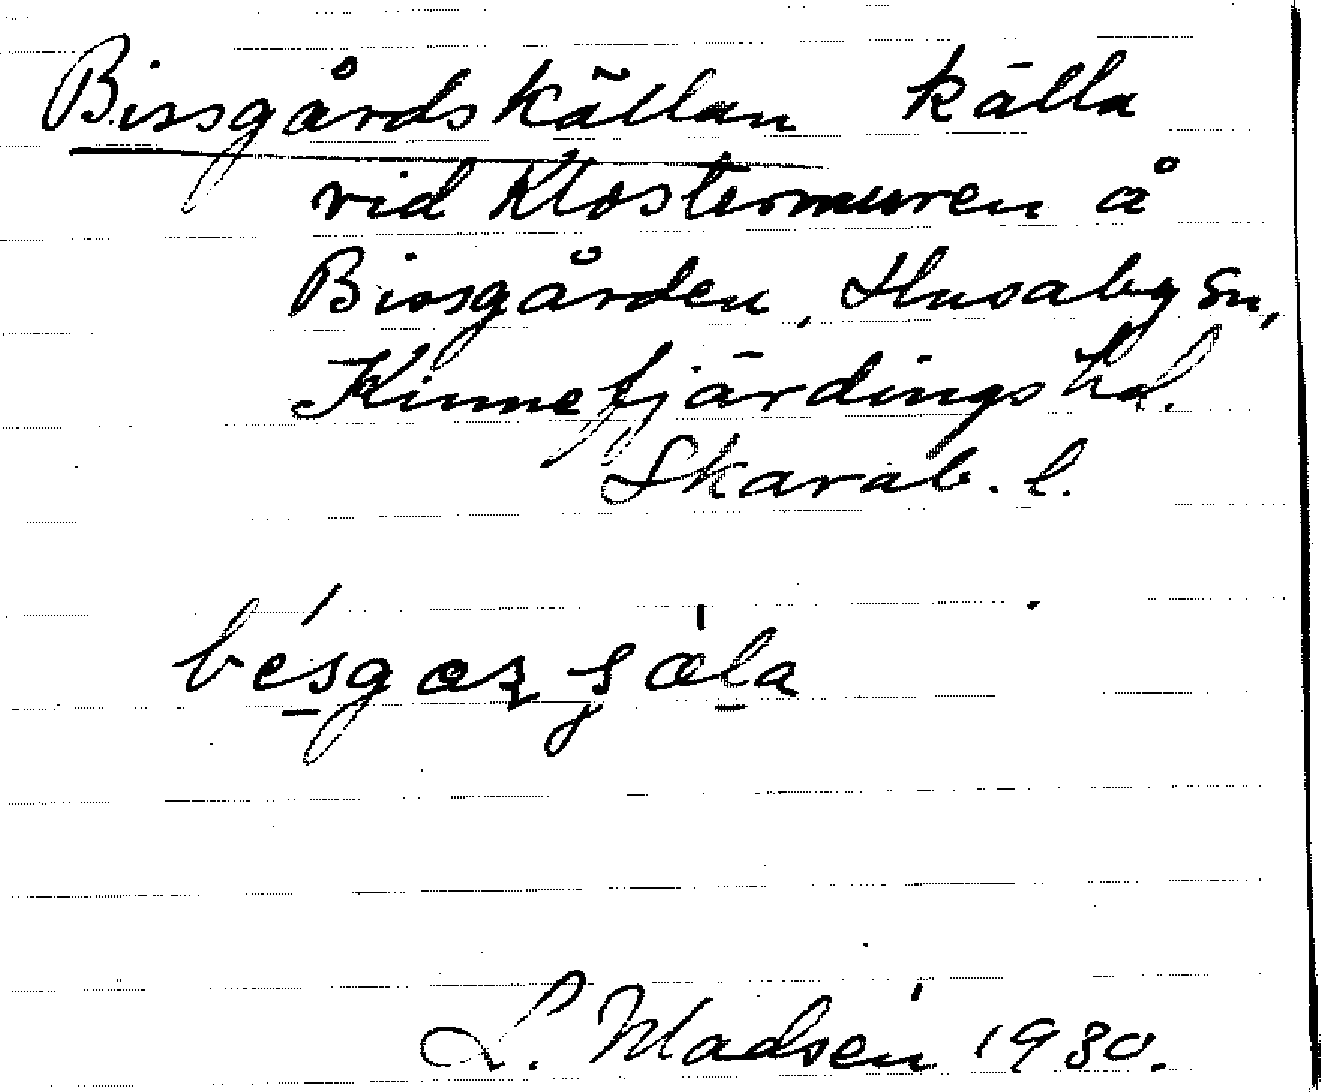 Bissgårdskällan källa
vid Klostermuren å
Bissgården, Husaby sn,
Kinnefjärdings hd.
Skarab. l.
L. Madsén 1930.